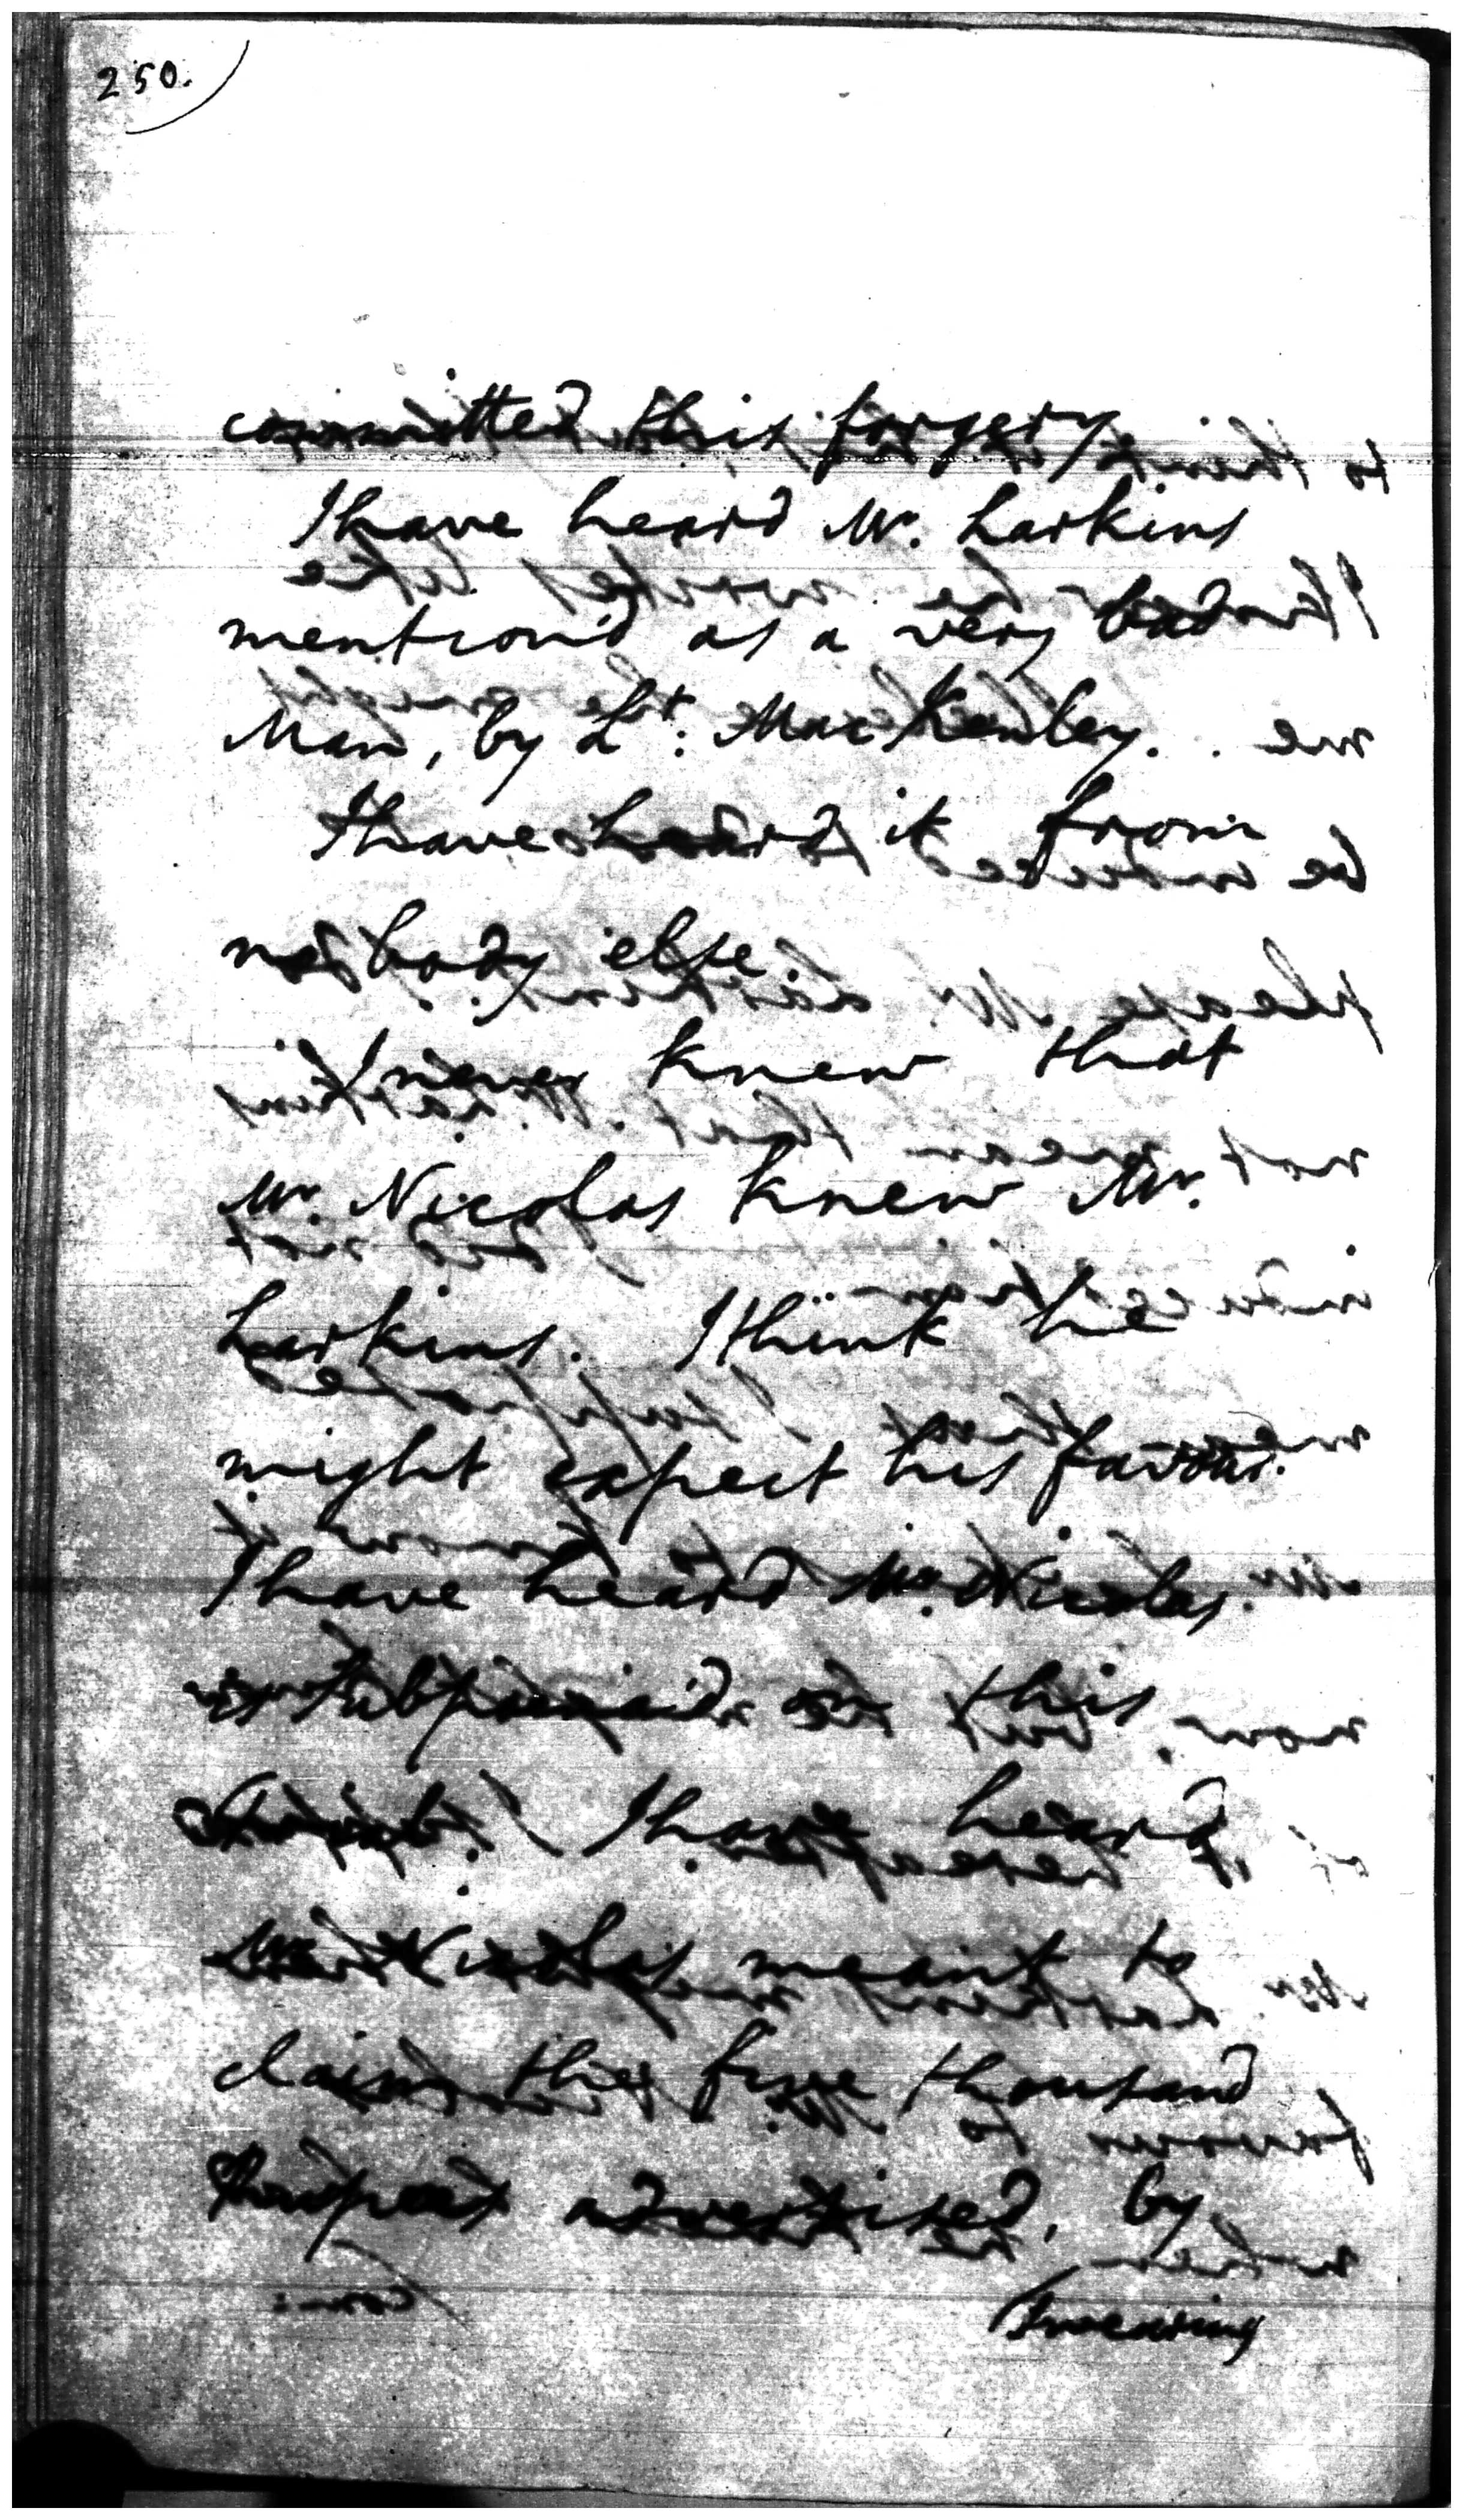 250.
committed this forgery.
I have heard Mr. Larkins
mention'd as a very bad
Man, by Lt. MacKenley.
I have heard it from
nobody else.
I never knew that
Mr. Nicolas knew Mr.
Larkins. I think he
might expect his favour.
I have heard Mr. Nicolas
is Subpoenaid on this
I have heard
Mr. Nicolas meant to
claim the five thousand
Rupees advertised, by
Swearing